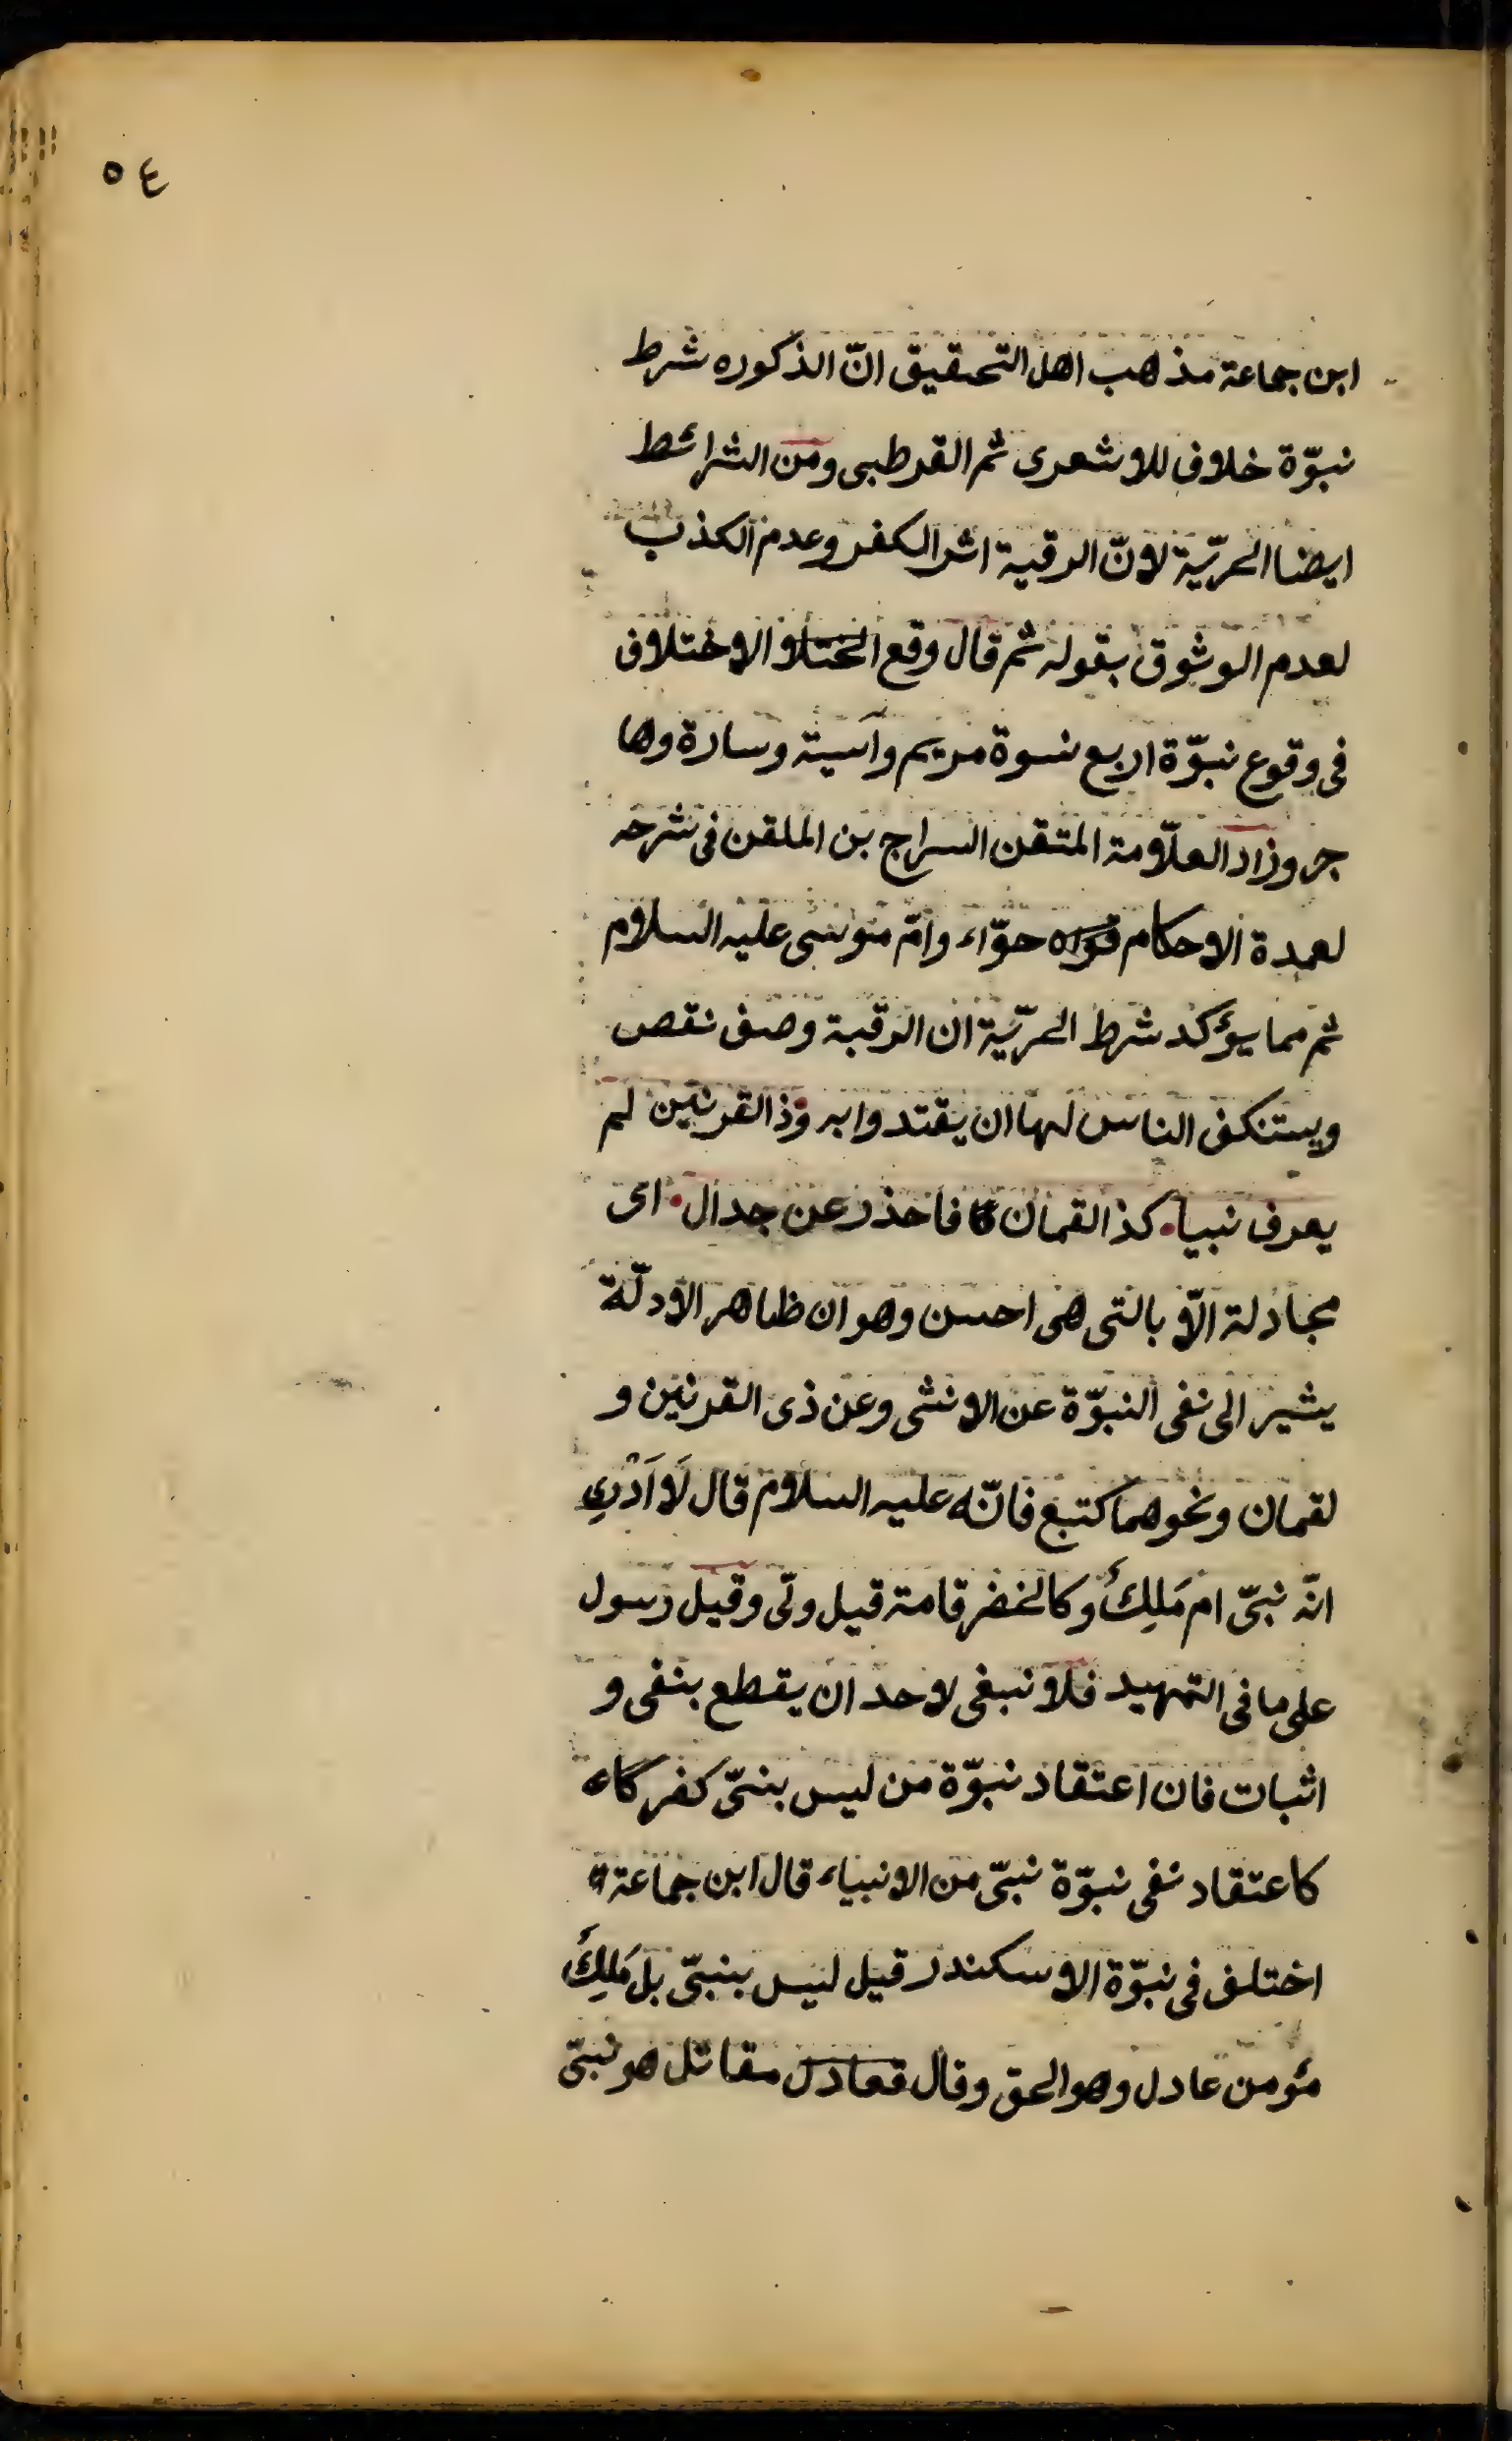 ٥٤
ابن جماعة مذهب اهل التحقيق انّ الذكوره شرط
نبوّة خلاف للاشعرى ثم القرطبى ومن الشرائط
ايضا الحرّيّة لانّ الرقية اثر الكفر وعدم الكذب
لعدم الوثوق بقوله ثم قال وقع الاختلاف
فى وقوع نبوّة اربع نسوة مريم وآسية وسارة وها
جر وزاد العلّامة المتقن السراج بن الملقن فى شرحه
لعمدة الاحكام حوّاء وامّ موسى عليه السلام
ثم مما يؤكد شرط الحرّيّة ان الرقبة وصف نقص
ويستنكف الناس لها ان يقتدوا به وذا القرنين لم
يعرف نبيا كذا لقمان فاحذر عن جدال اى
مجادلة الّا بالتى هى احسن وهو ان ظاهر الادلّة
يشير الى نفى النبوّة عن الانثى وعن ذى القرنين و
لقمان ونحوهما كتبع فانّه عليه السلام قال لَا اَدْرِى
انّه نبىّ ام مَلِكٌ وكالخضر قامة قيل ولّى وقيل رسول
على ما فى التمهيد فلا نبغى لاحد ان يقطع بنفى و
اثبات فان اعتقاد نبوّة من ليس بنبىّ كفر كاء
كاعتقاد نفى نبوّة نبىّ من الانبياء قال ابن جماعة
اختلف فى نبوّة الاسكندر قيل ليس بنبىّ بل مَلِكٌ
مؤمن عادل وهو الحق وقال مقاتل هو نبىّ